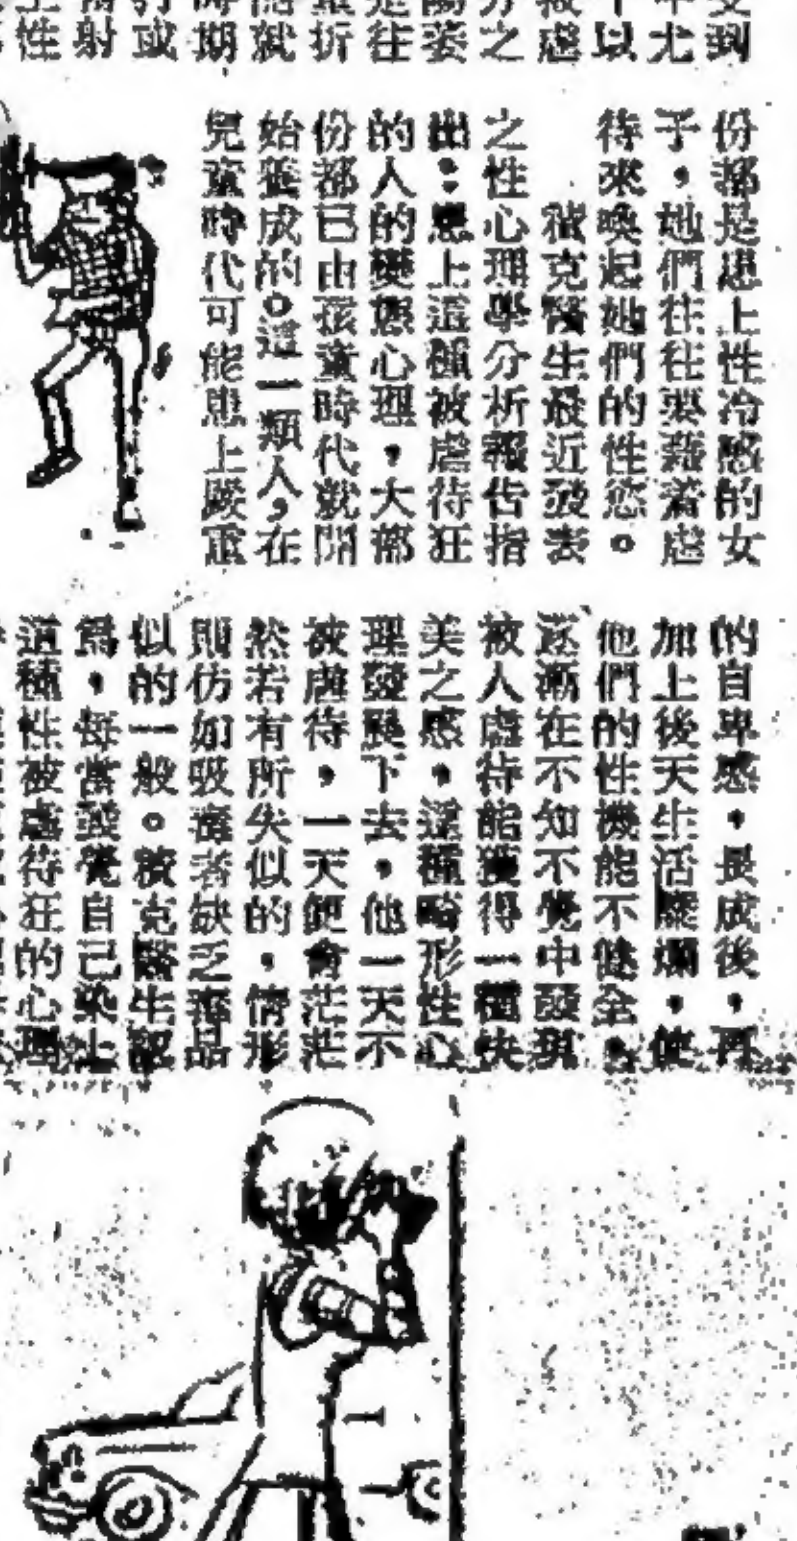 受到
尤
以
被虐
分之
陽萎
是往
折
就
時期
射或
上性
份都是患上性冷感的女
子，她們往往要藉着虐
待來喚起她們的性慾。
被克醫生最近發表
之性心理學分析報告指
出：患上這種被虐待狂
的人的變態心理，大部
份都已由孩童時代就開
始養成的。這一類人，在
兒童時代可能患上嚴重
的自卑感，長成後，再
加上後天生活糜爛，使
他們的性機能不健全，
逐漸在不知不覺中發現
被人虐待能獲得一種快
美之感，這種畸形性心
理發展下去，他一天不
被虐待，一天便會茫茫
然若有所失似的，情形
則仿如吸毒者缺乏毒品
似的一般。被克醫生認
爲，每當發覺自己染上
這種性被虐待狂的心理